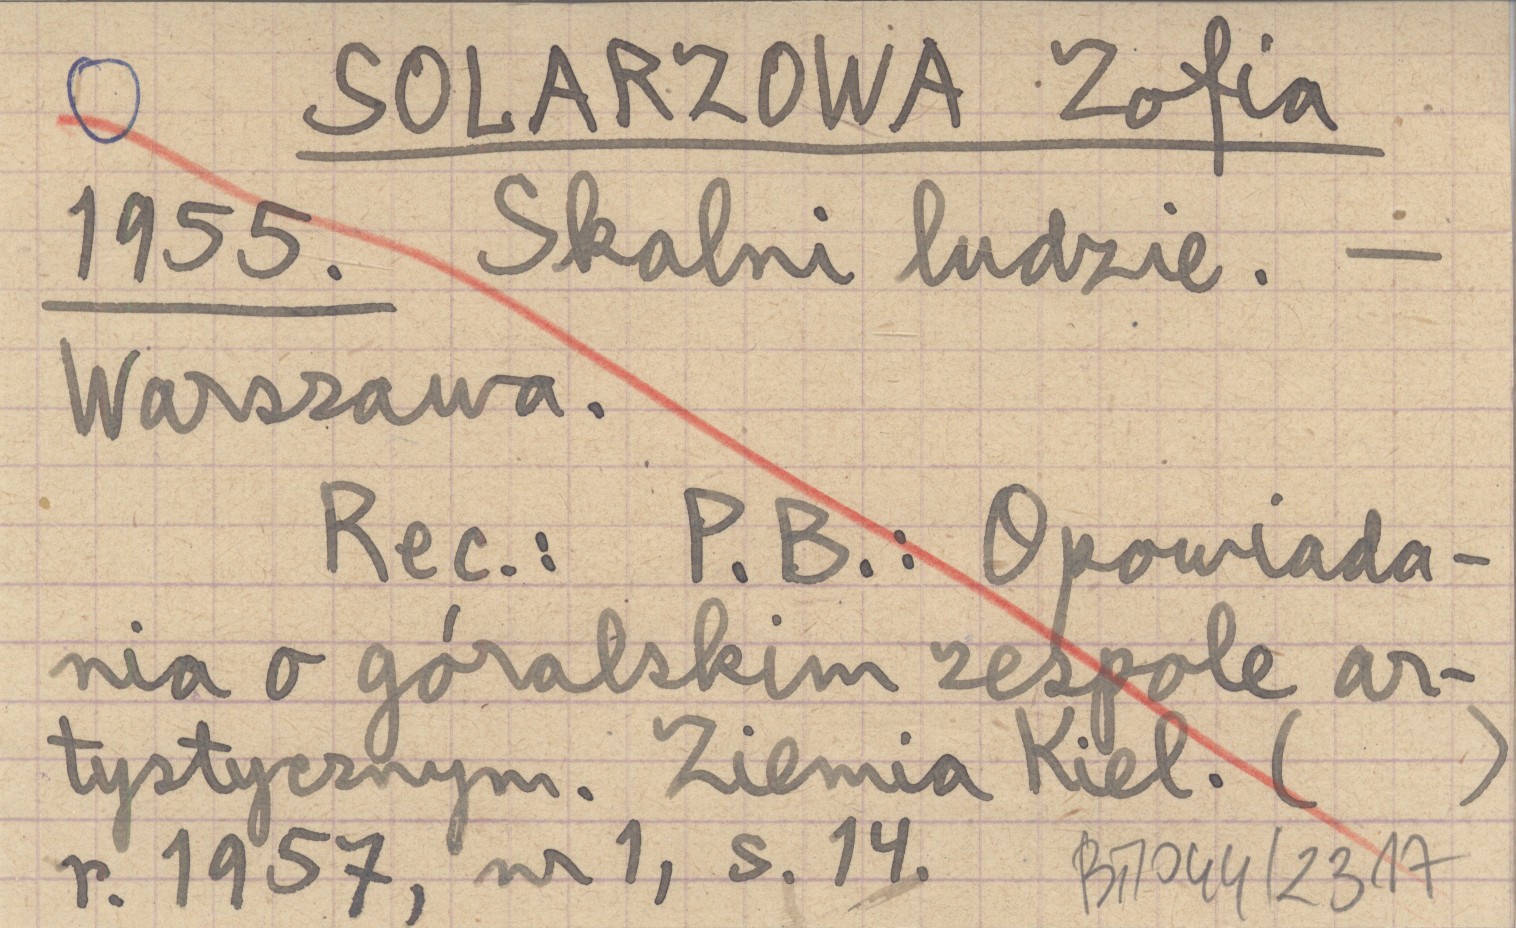 SOLARZOWA Zofia
1955. Skalni ludzie. —
Warszawa.
Rec.: P.B.: Opowiada-
nia o góralskim zespole ar-
tystycznym. Ziemia Kiel. ( )
r. 1957, nr 1, s. 14.